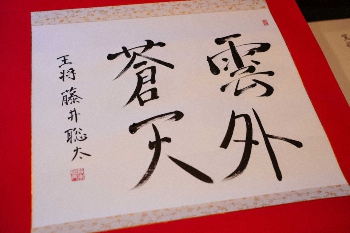 雲外
蒼天
王将 藤井聡太